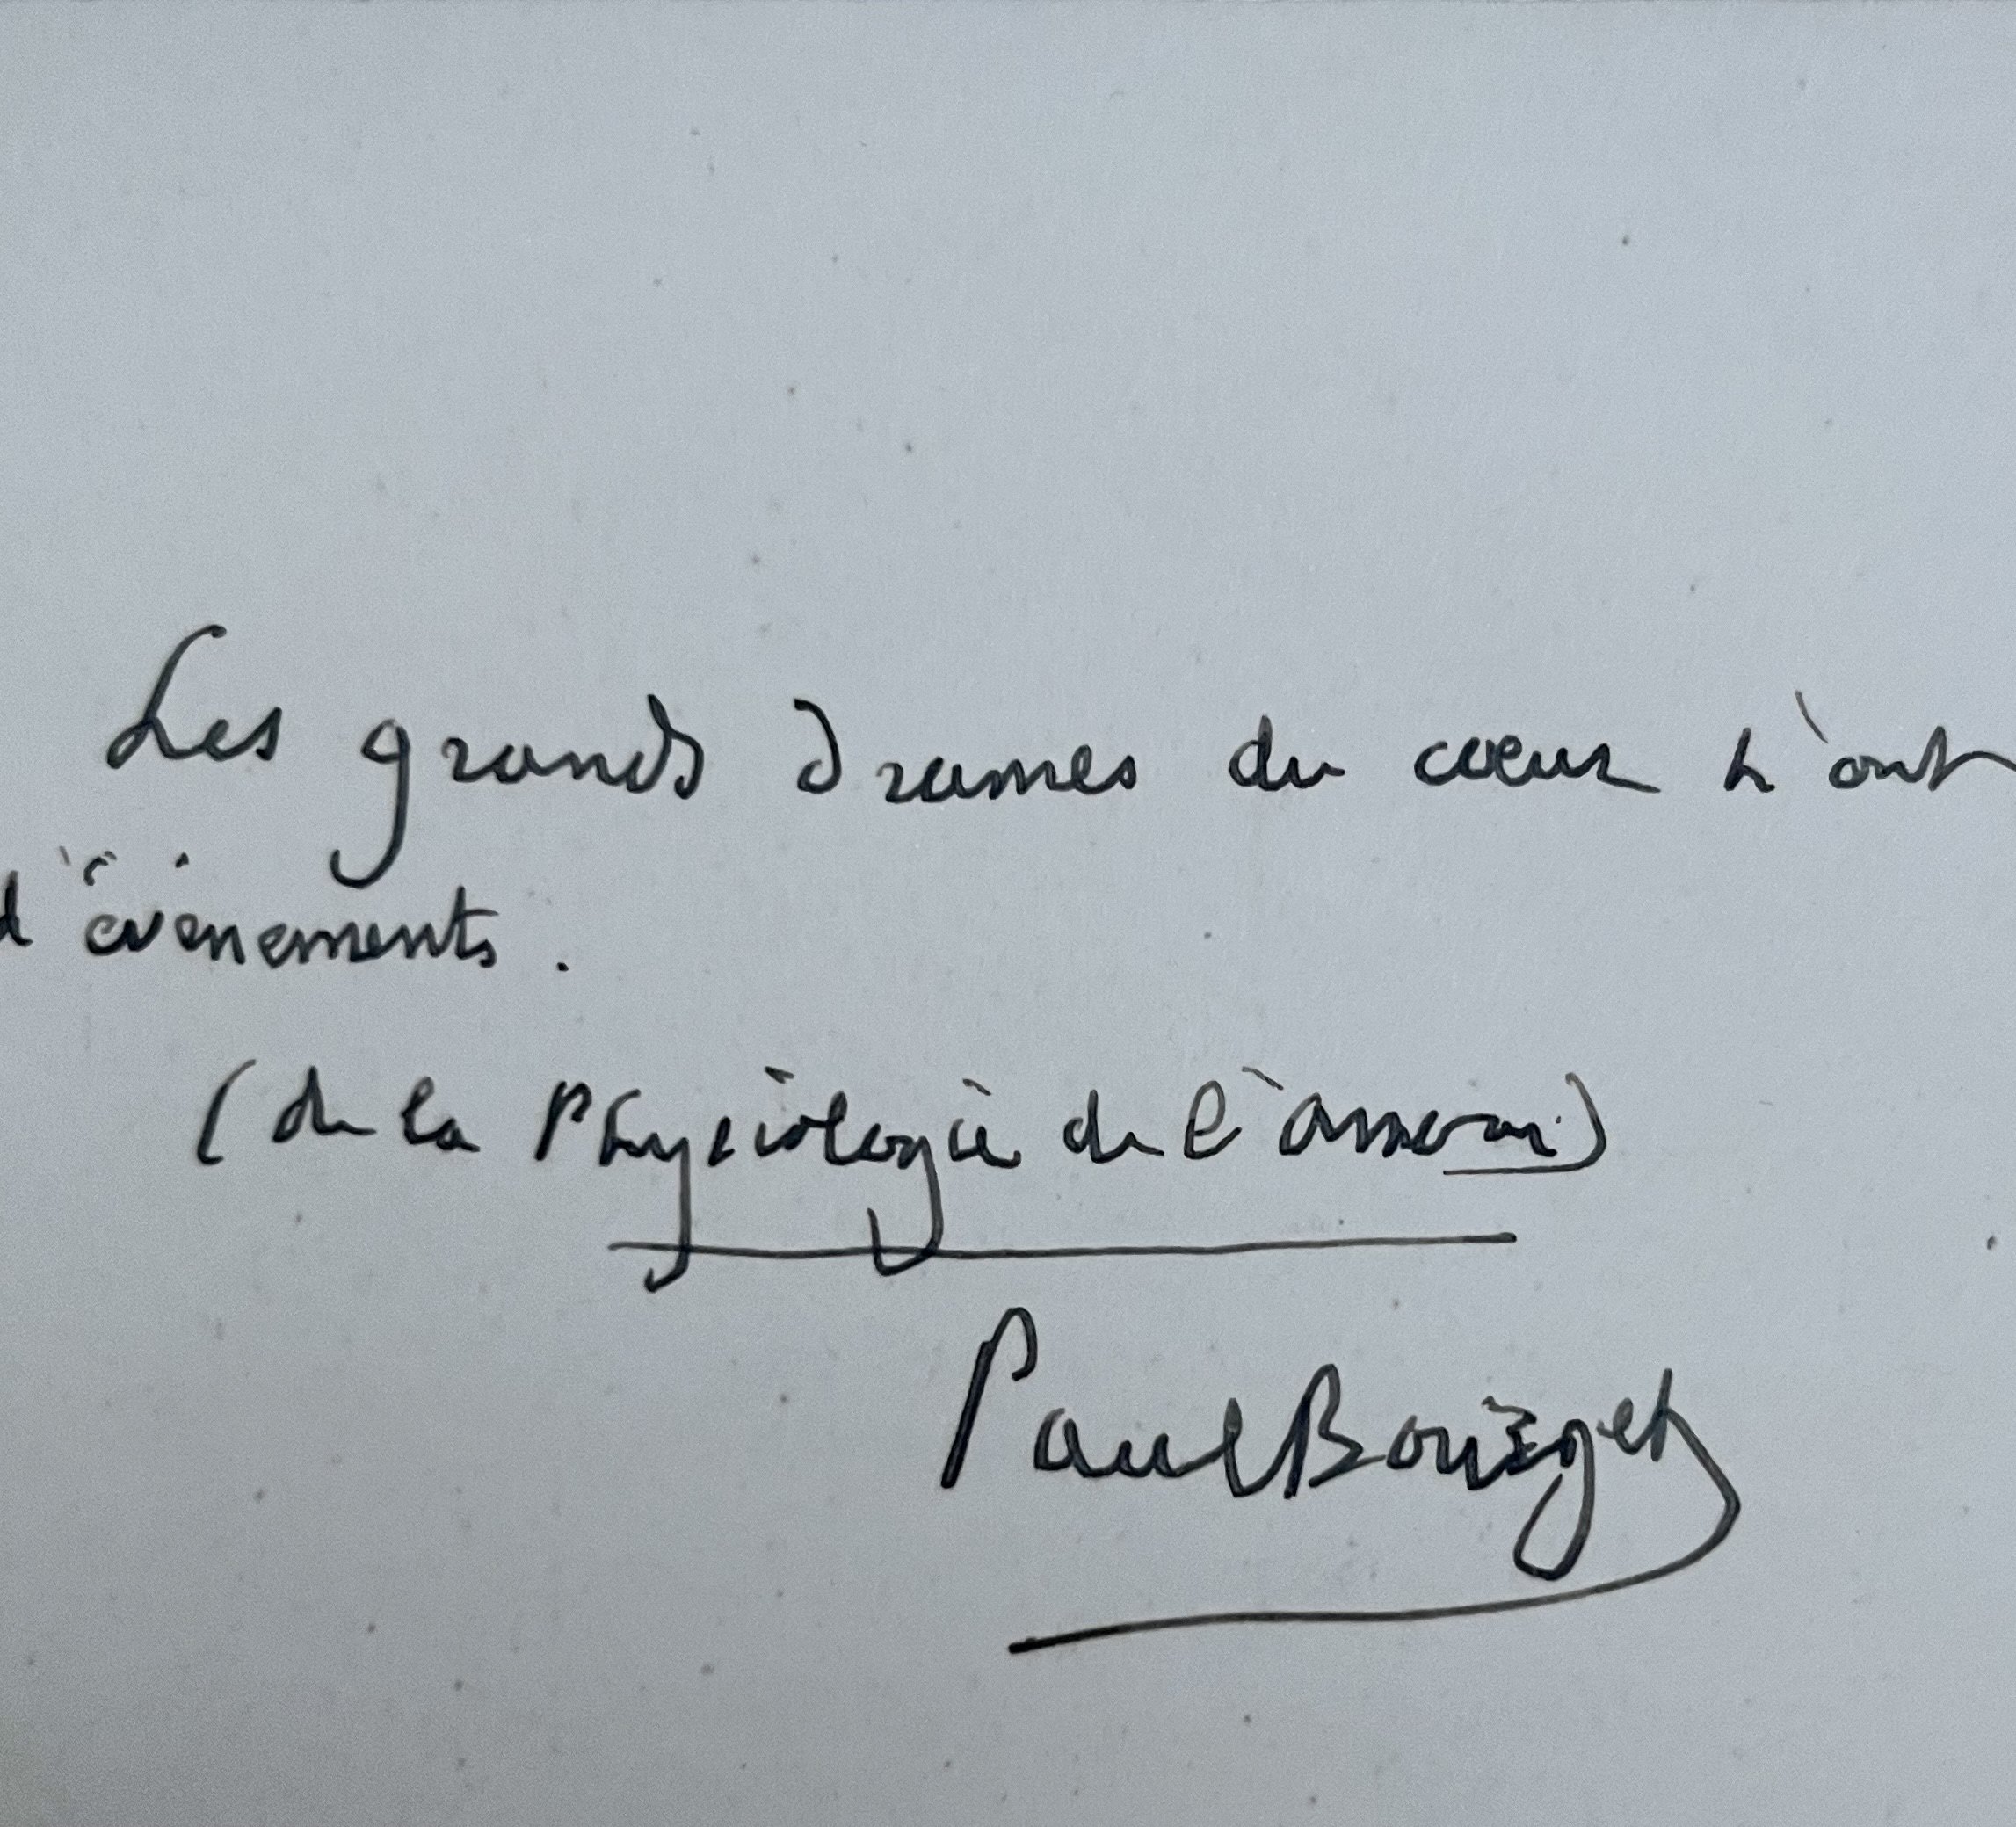 Les grands drames du cœur n'ont
d'événements.
(de la Physiologie de l'amour)
Paul Bourget